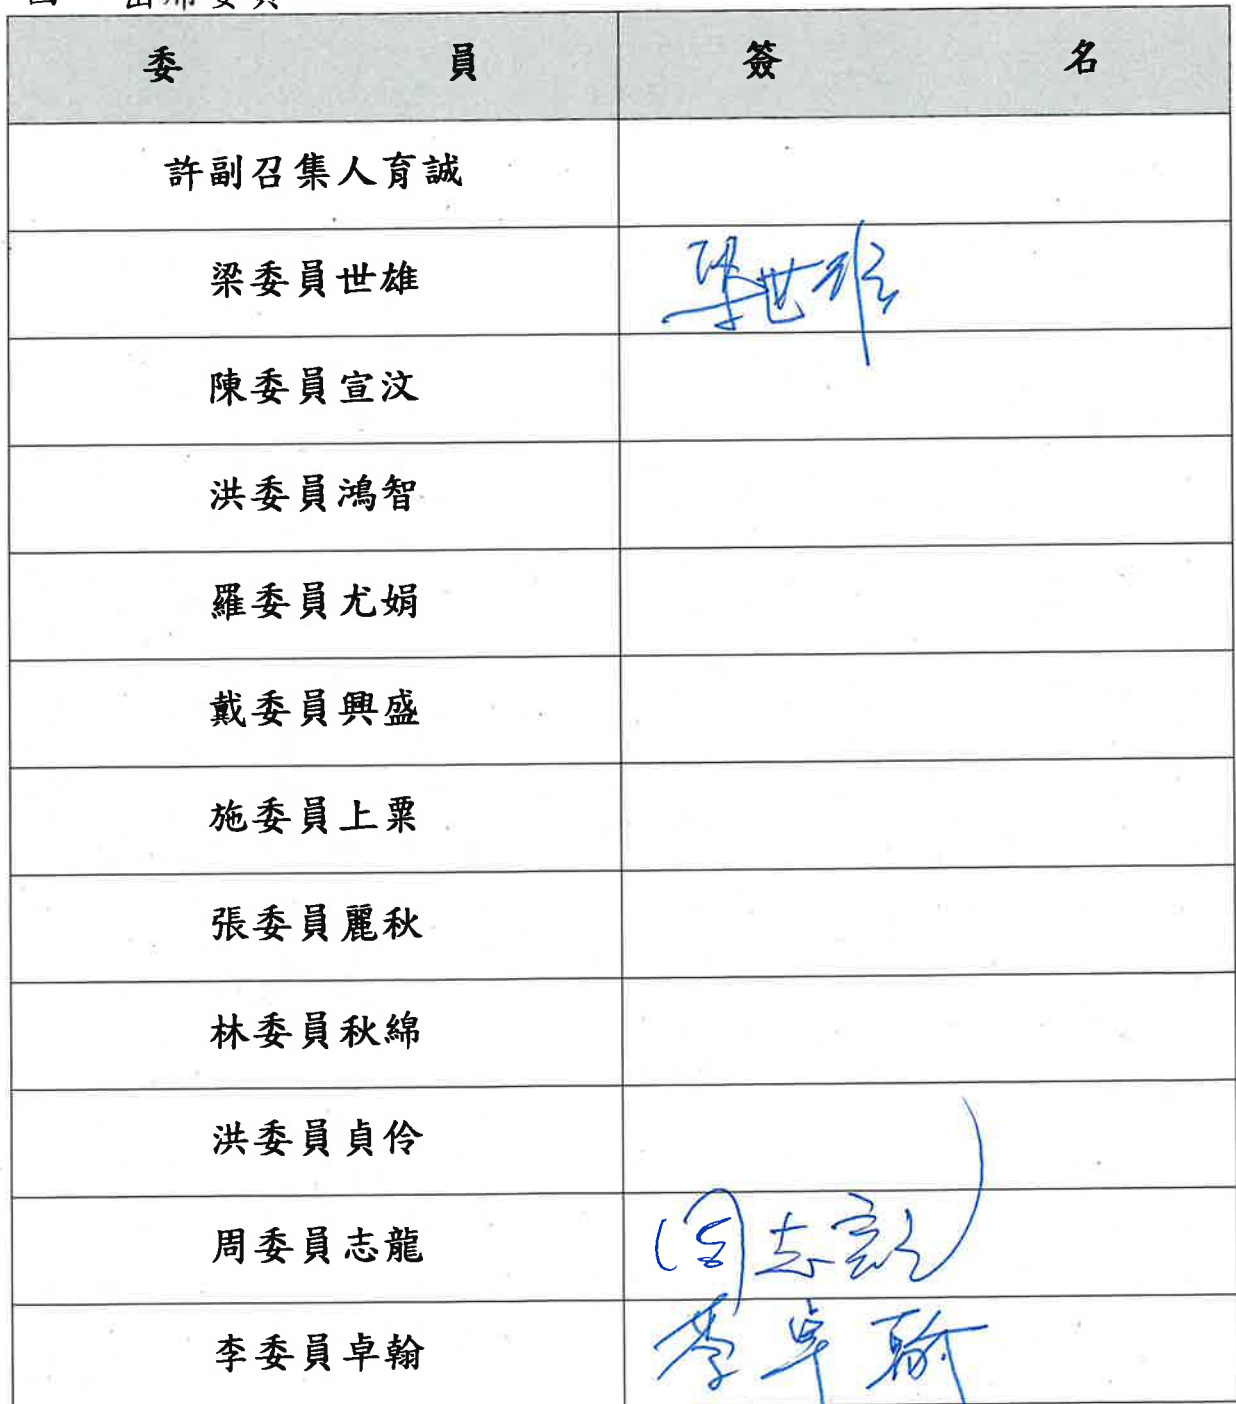 出席委員
委員 簽名
許副召集人育誠
梁委員世雄 梁世雄
陳委員宣汶
洪委員鴻智
羅委員尤娟
戴委員興盛
施委員上粟
張委員麗秋
林委員秋綿
洪委員貞伶
周委員志龍 周志龍
李委員卓翰 李卓翰